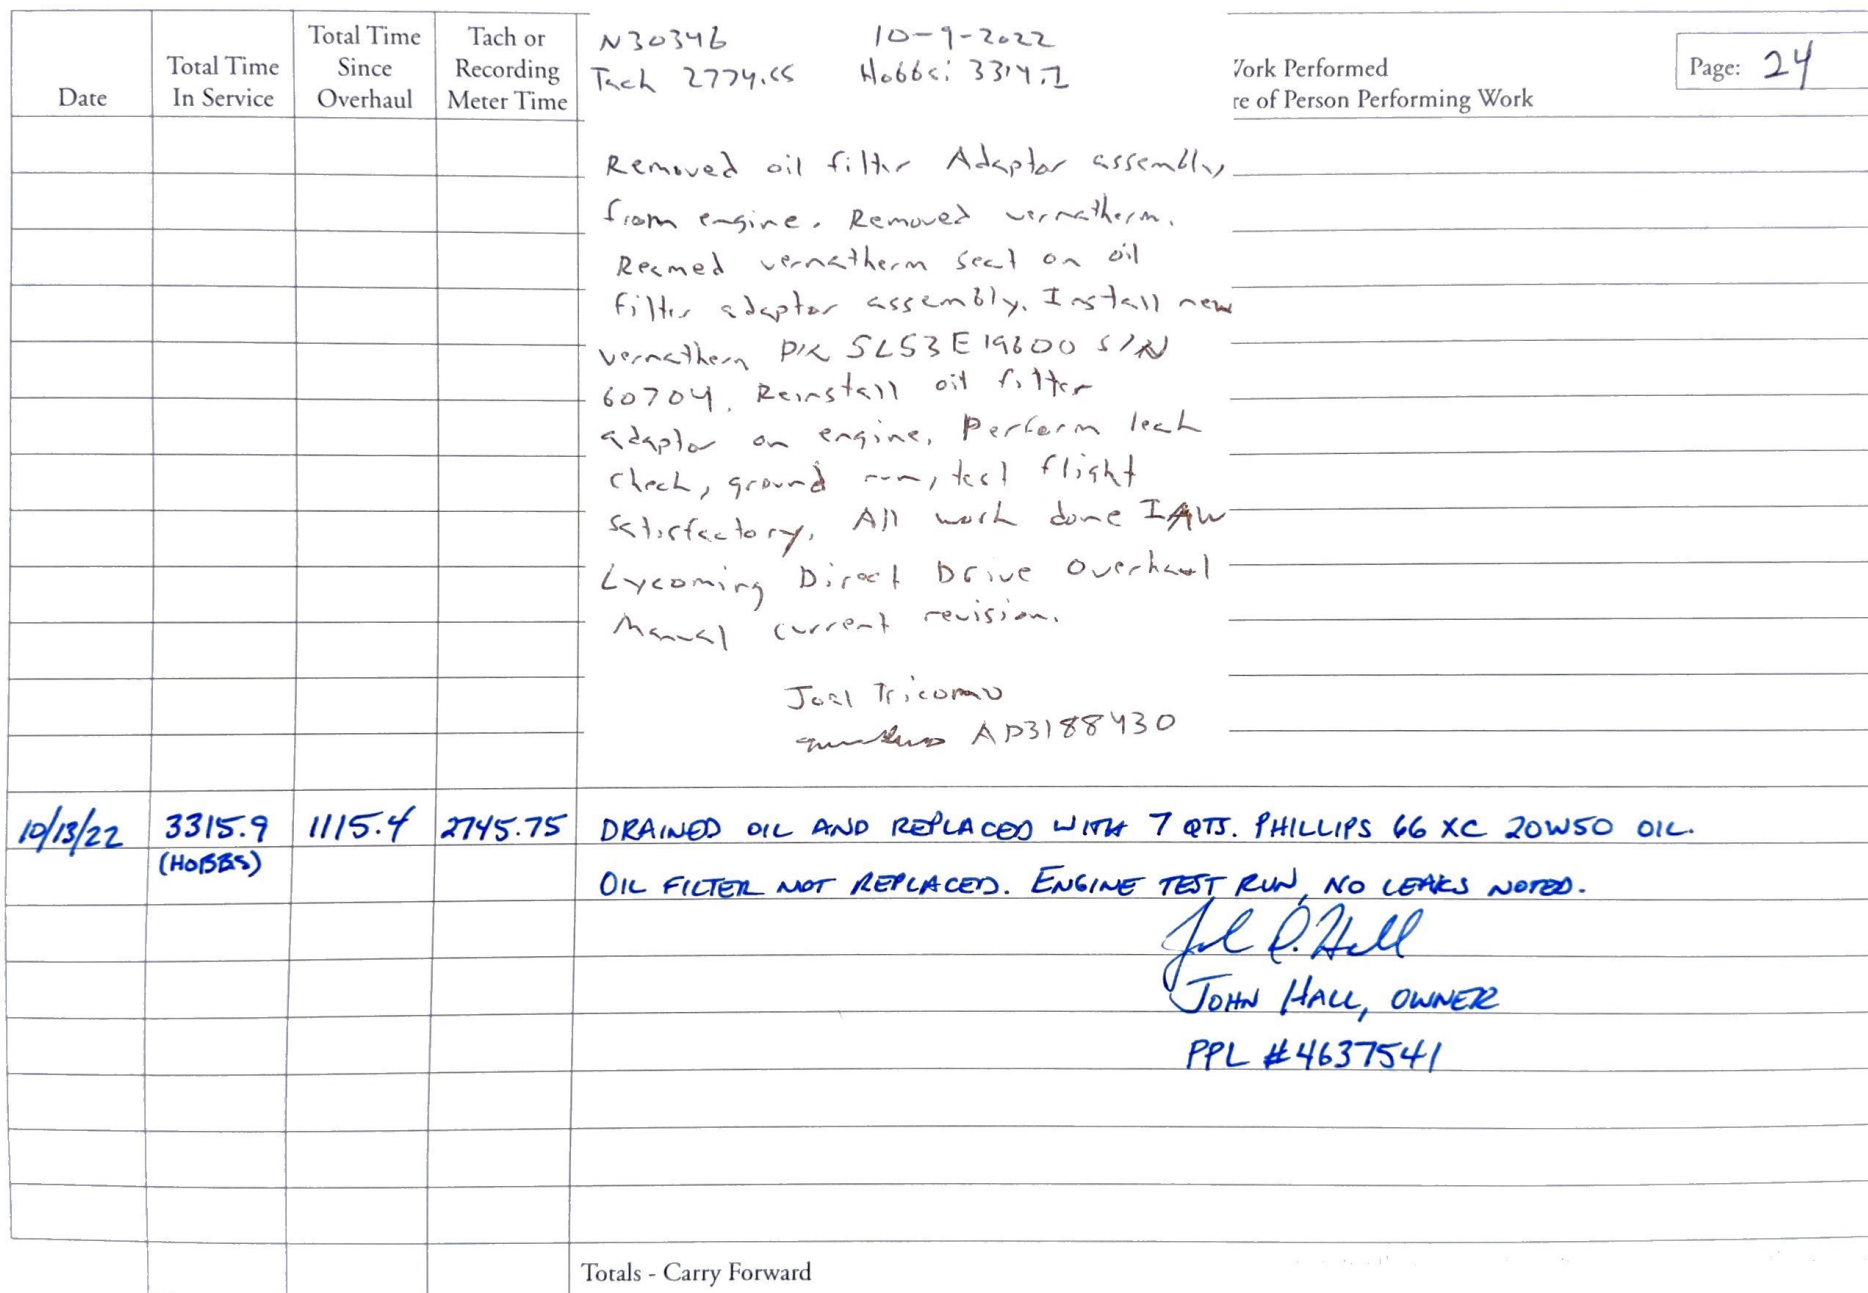 Date
Total Time In Service
Total Time Since Overhaul
Tach or Recording Meter Time
N30346 10-9-2022
Tach 2774.55 Hobbs: 3314.1
Work Performed
re of Person Performing Work
Page: 24
Removed oil filter Adaptor assembly
from engine. Removed vernatherm.
Reamed vernatherm seat on oil
filter adaptor assembly. Install new
vernatherm P/N SL53E19600 S/N
60704. Reinstall oil filter
adaptor on engine. Perform leak
check, ground run, test flight
satisfactory. All work done IAW
Lycoming Direct Drive Overhaul
Manual current revision.
Joel Tricomo
AP3188430
10/13/22 3315.9 1115.4 2745.75 DRAINED OIL AND REPLACED WITH 7 QTS. PHILLIPS 66 XC 20W50 OIL.
(HOBBS)
OIL FILTER NOT REPLACED. ENGINE TEST RUN, NO LEAKS NOTED.
JOHN HALL, OWNER
PPL #4637541
Totals - Carry Forward